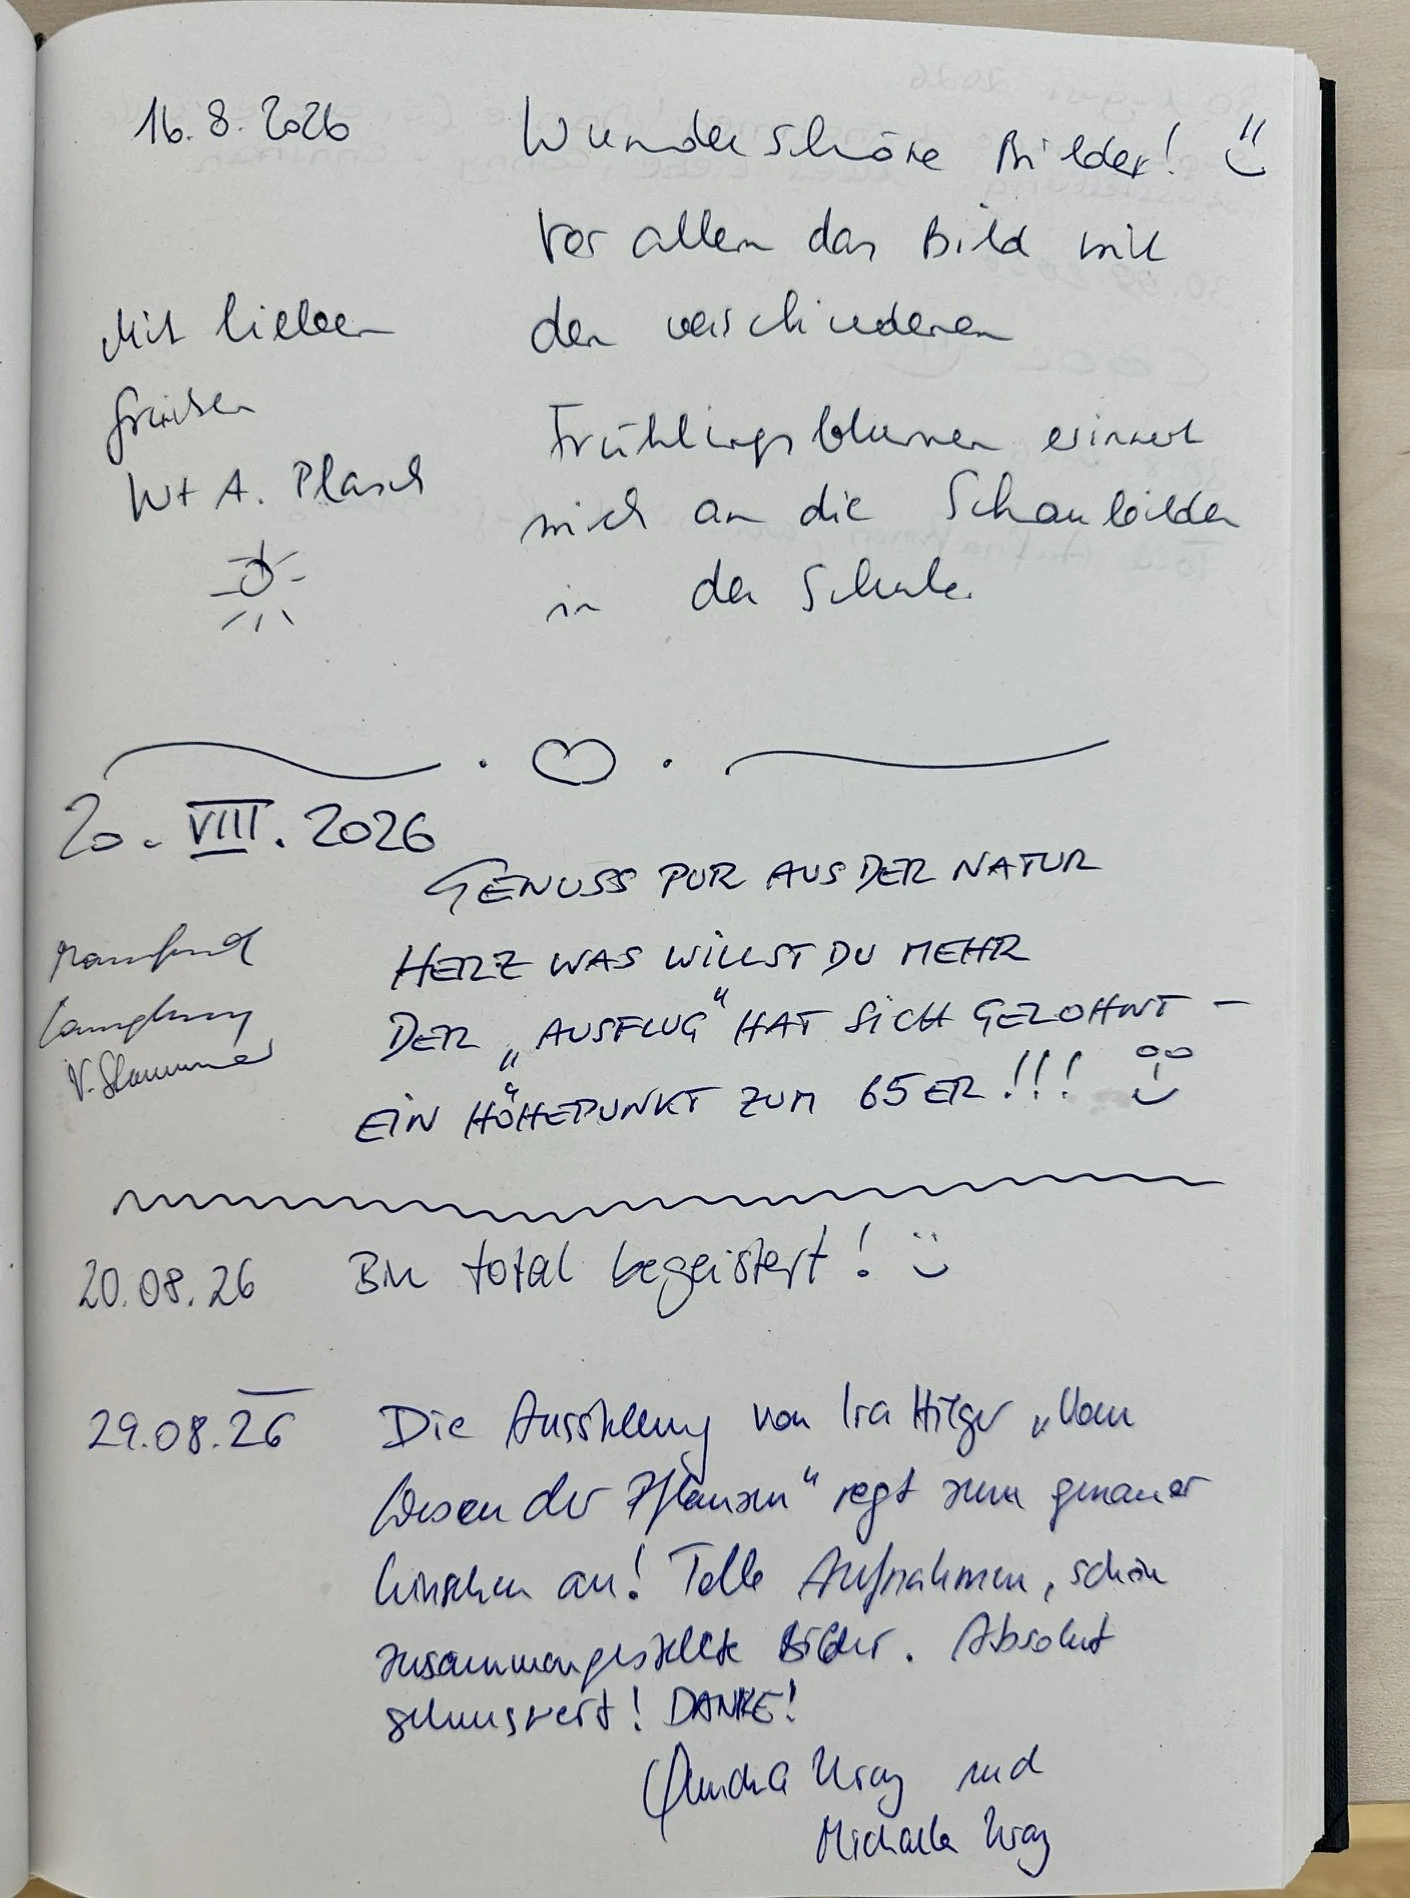 16.8.2026
Wunderschöne Bilder!
Vor allem das Bild mit
den verschiedenen
Frühlingsblumen erinnert
mich an die Schaubilder
in der Schule.
Mit lieben
Grüßen
W+A. Plasch
20. VIII. 2026
GENUSS PUR AUS DER NATUR
HERZ WAS WILLST DU MEHR
DER „AUSFLUG“ HAT SICH GELOHNT –
EIN HÖHEPUNKT ZUM 65ER!!!
Manfred
20.08.26
Bin total begeistert!
29.08.26
Die Ausstellung von Ira Hilger „Vom
Wesen der Pflanzen“ regt zum genauer
hinsehen an! Tolle Aufnahmen, schön
zusammengestellte Bilder. Absolut
sehenswert! DANKE!
und
Michaela